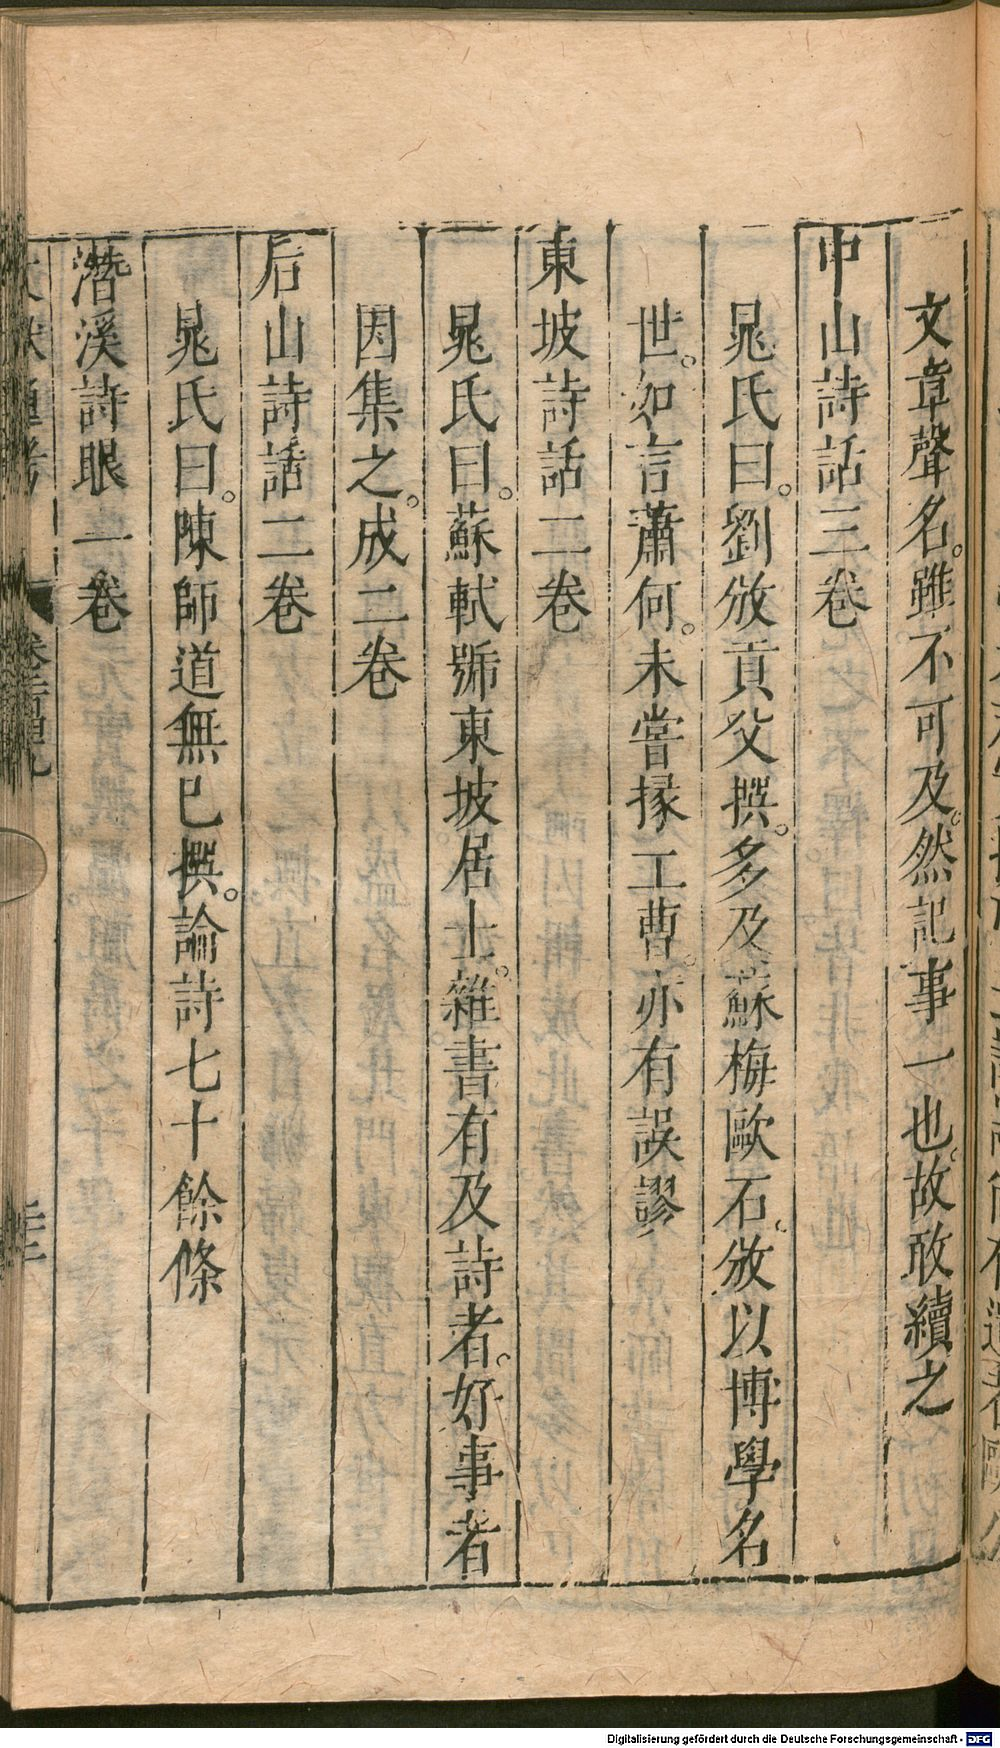 文章聲名。雖不可及。然記事一也。故敢續之
中山詩話三卷
晁氏曰。劉攽貢父撰。多及蘇梅歐石。攽以博學名
世。如言蕭何。未嘗掾工曹。亦有誤謬
東坡詩話二卷
晁氏曰。蘇軾號東坡居士。雜書有及詩者。好事者
因集之。成二卷
后山詩話二卷
晁氏曰。陳師道無已撰。論詩七十餘條
潛溪詩眼一卷
Digitalisierung gefördert durch die Deutsche Forschungsgemeinschaft - DFG